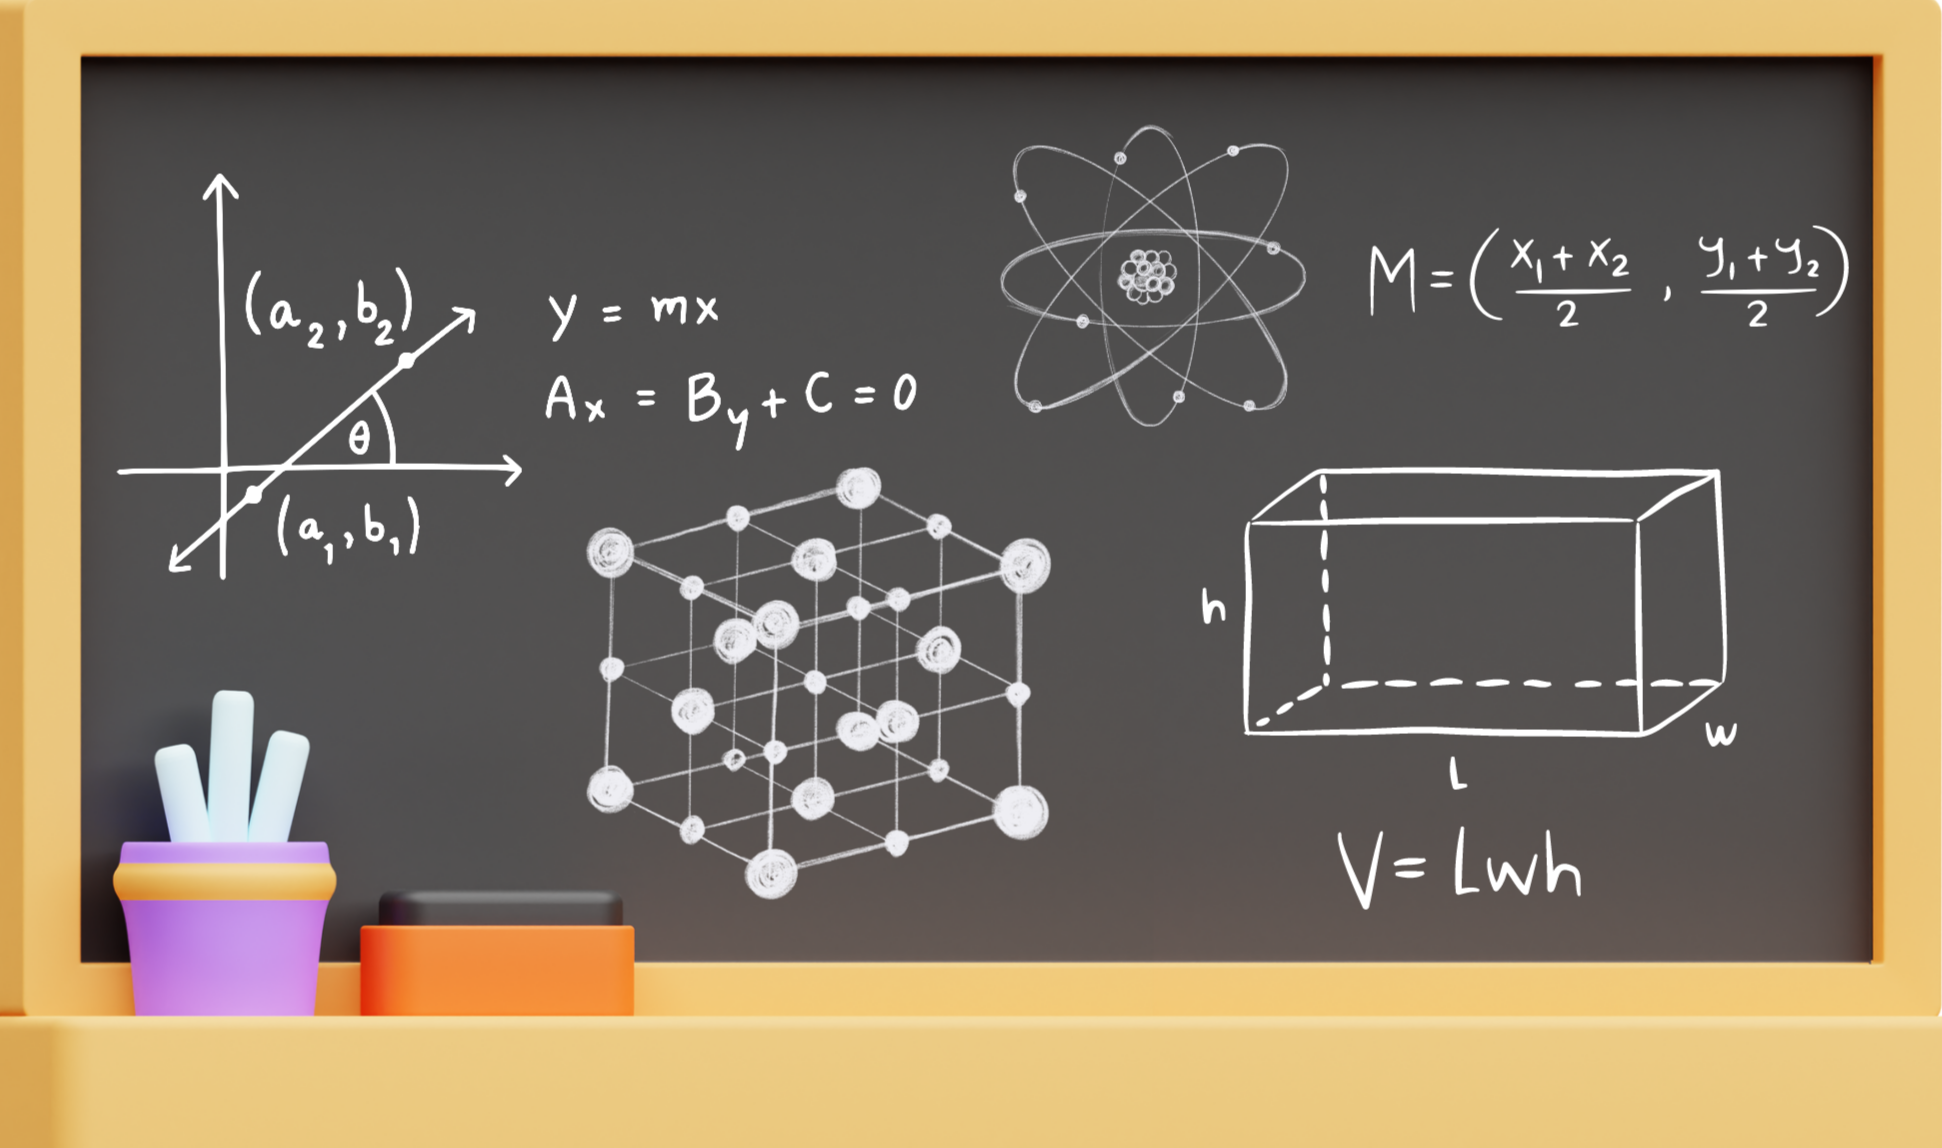 (a₂, b₂)
θ
(a₁, b₁)
y = mx
Ax = By + C = 0
M = (x₁ + x₂ / 2 , y₁ + y₂ / 2)
h
w
L
V = Lwh